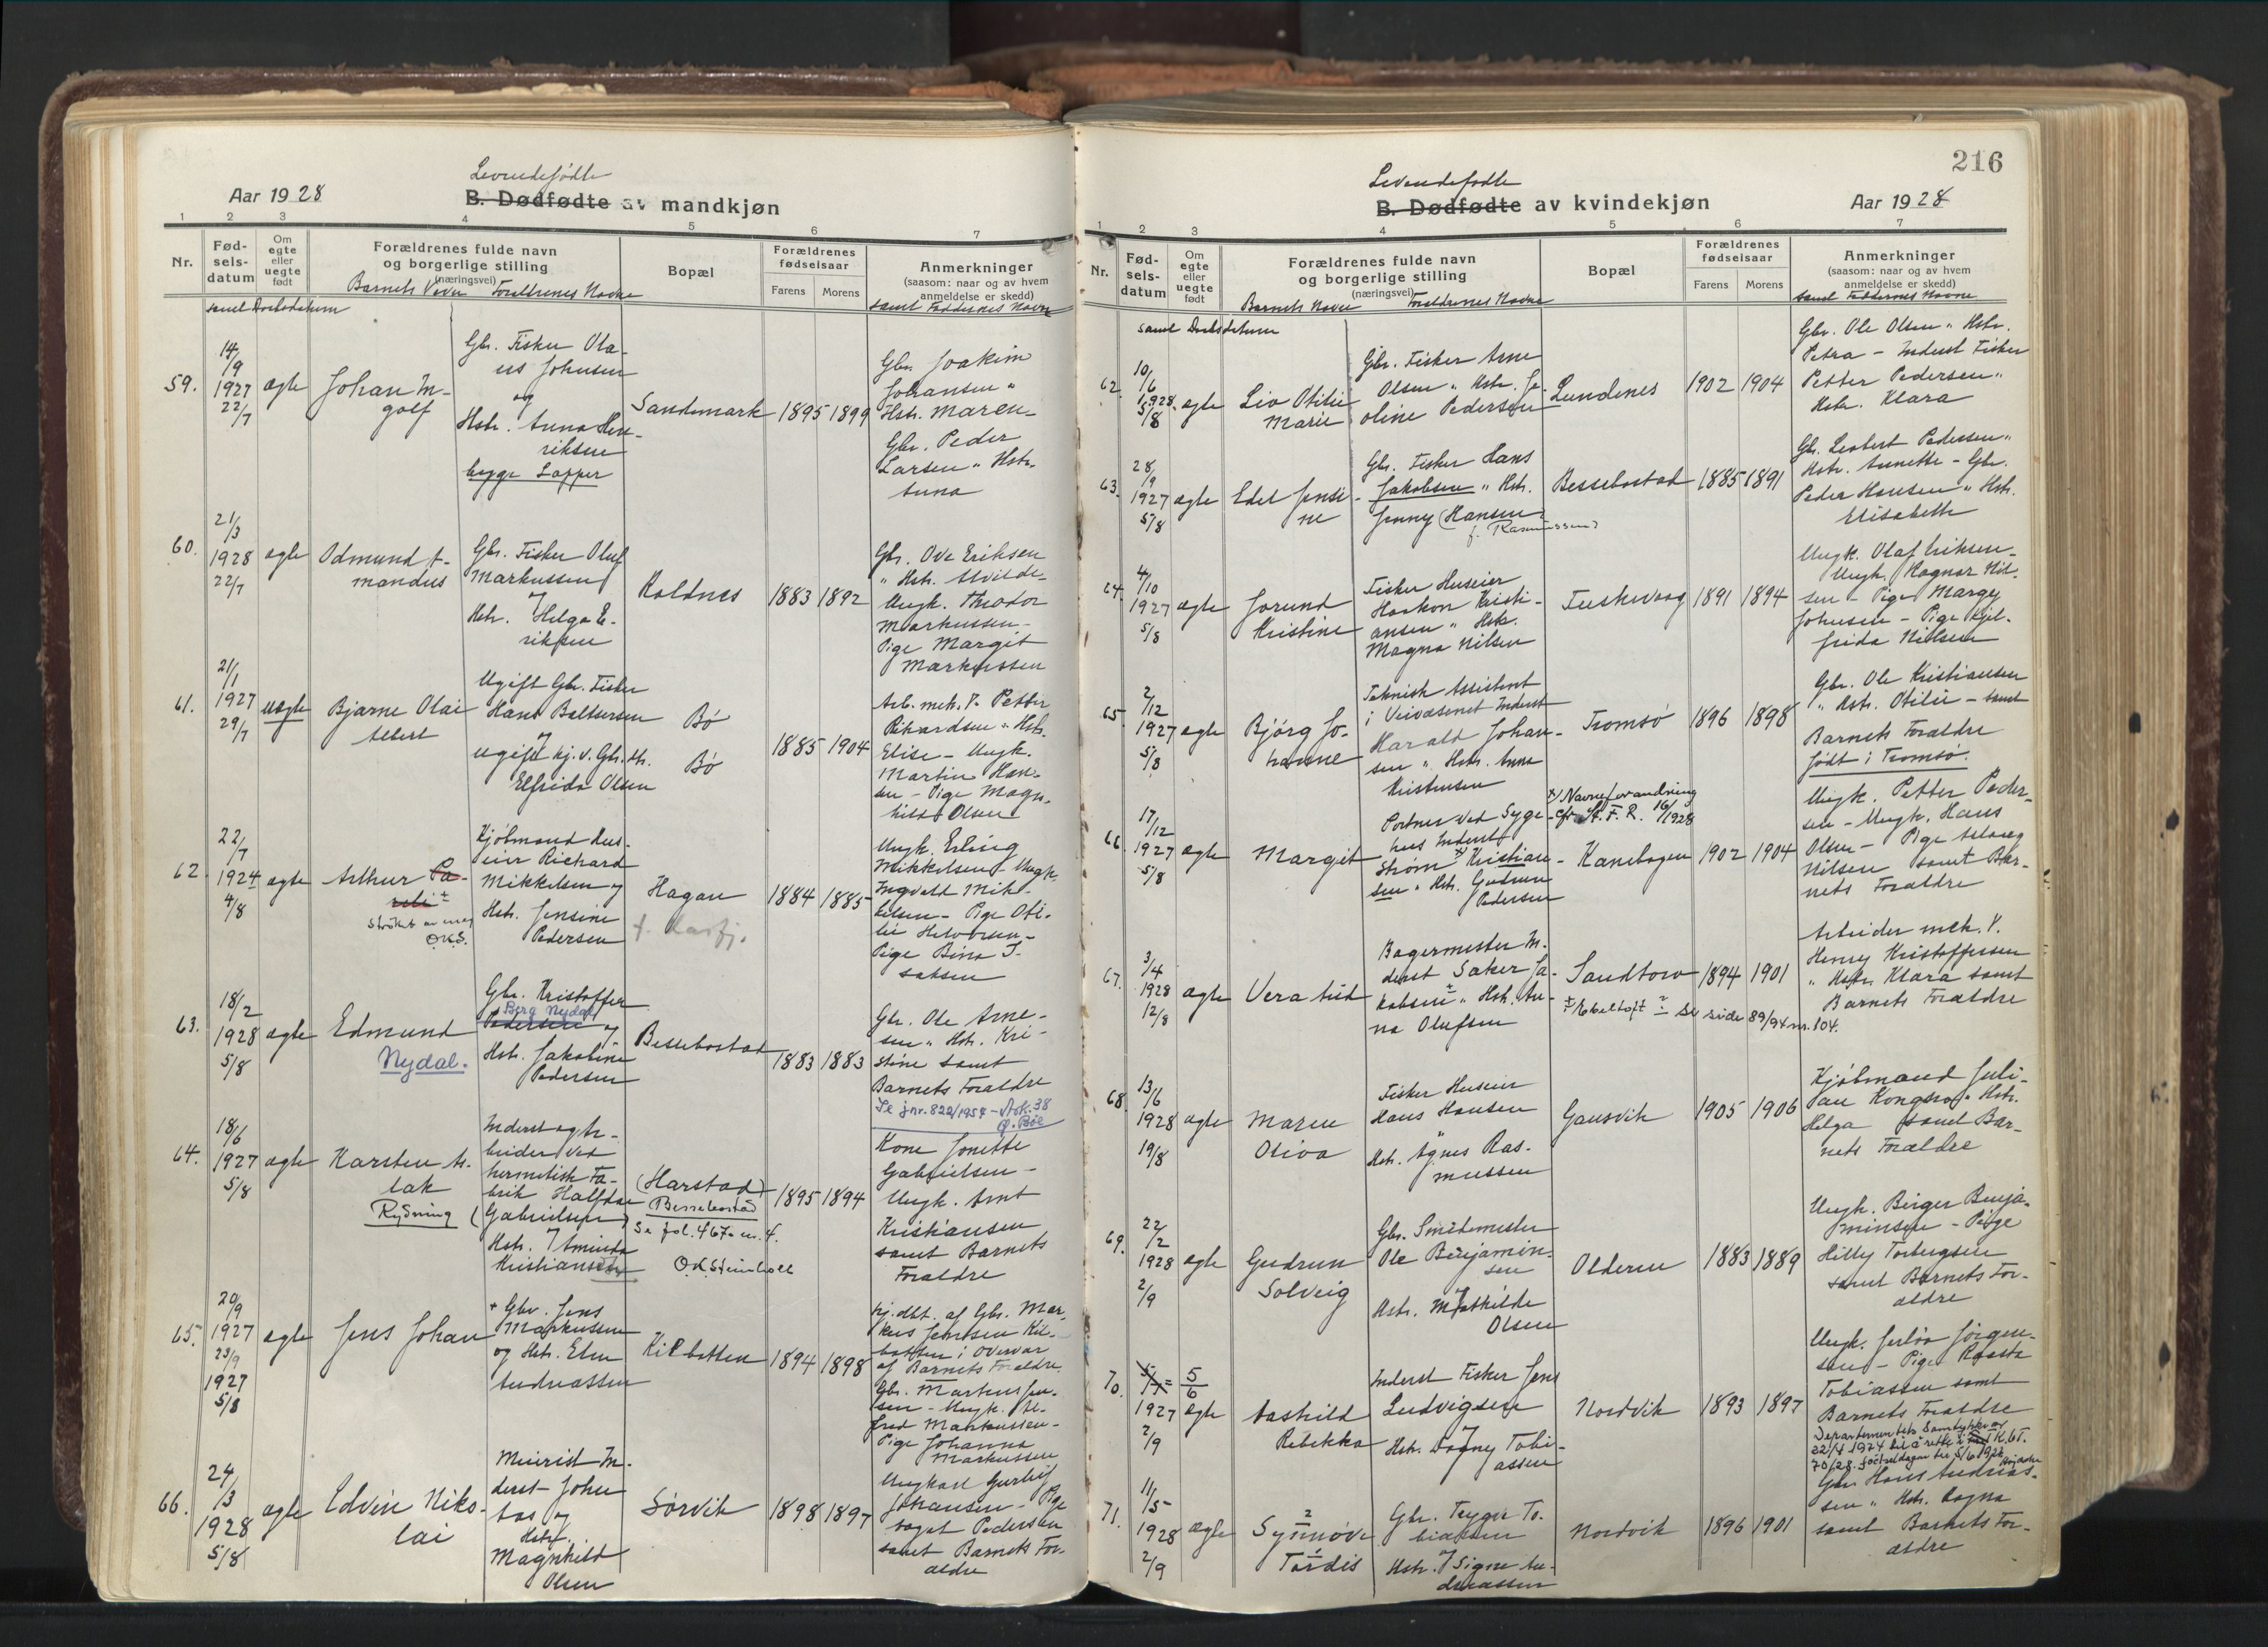 Levendefödte
Aar 1928
B. Dødfødte av mandkjøn
1 2 3 4 5 6 7
Nr.
Fød-
sels-
datum
Om
egte
eller
uegte
født
Forældrenes fulde navn
og borgerlige stilling
(næringsvei)
Barnets Navn Forældrenes Navne
Bopæl
Forældrenes
fødselsaar
Farens Morens
Anmerkninger
(saasom: naar og av hvem
anmeldelse er skedd)
samt Faddernes Navne
samt Daabsdatum
59.
14/9
1927
22/7
ægte
Johan In-
golf
Gbr. Fisker Ola-
us Johnsen
og
Hstr. Anna Hen-
riksen
begge Lapper
Sandmark
1895 1899
Gbr. Joakim
Johansen "
Hstr. Maren -
Gbr. Peder
Larsen " Hstr.
Anna
60.
21/3
1928
22/7
ægte
Odmund A-
mandus
Gbr. Fisker Oluf
Markussen
og
Hstr. Helga E-
riksen
Roldnes
1883 1892
Gbr. Ove Eriksen
" Hstr. Alvilde -
Ungk. Theodor
Markussen -
Pige Margit
Markussen
61.
21/1
1927
29/7
uægte
Bjarne Olai
Albert
Ugift Gbr. Fisker
Hans Baltsersen
og
Ugift Pj. v. Gbr. dtr.
Elfrida Olsen
Bø
Bø
1885 1904
Arb. mek. V. Petter
Rikardsen " Hstr.
Elise - Ungk.
Martin Han-
sen - Pige Magn-
hild Olsen
62
22/7
1924
4/8
ægte
Arthur Pa-
reli
Strøket av meg
O.K.S.
Kjøbmand Hus-
eier Richard
Mikkelsen og
Hstr. Jensine
Pedersen
Hagan
1884 1885
Ungk. Erling
Mikkelsen - Ungk.
Ingvald Mik-
kelsen - Pige Oti-
lie Halvorsen -
Pige Bina I-
saksen
63.
18/2
1928
5/8
ægte
Edmund
Nydal.
Gbr. Kristoffer
Berg Nydal
Pedersen og
Hstr. Jakobine
Pedersen
Bessebostad
1883 1883
Gbr. Ole Arne-
sen " Hstr. Kri-
stine samt
Barnets Forældre
Se jnr. 822/1954 - Ark. 38
64.
18/6
1927
5/8
ægte
Karsten As-
lak
Rydning
Inderst og Ar-
beider ved
hermetisk Fa-
brik Halfdan
(Gabrielsen)
og
Hstr. Aminda
Kristiansen
(Harstad)
Bessebostad
Se fol. 467a nr. 4.
O.K. Steinholt
1895 1894
Kone Jonette
Gabrielsen -
Ungk. Arnt
Kristiansen
samt Barnets
Forældre
65.
20/9
1927
23/9
1927
5/8
ægte
Jens Johan
+ Gbr. Jens
Markussen
og Hstr. Elen
Andreassen
Kilbotten
1894 1898
hj. dbt. af Gbr. Mar-
kus Jensen Kil-
botten i Overvær
af Barnets Forældre.
Gbr. Martin Jen-
sen - Ungk. Al-
fred Markussen -
Pige Johanna
Markussen
66.
24/3
1928
5/8
ægte
Edvin Niko-
lai
Meierist In-
derst John
Aas og
Hstr.
Magnhild
Olsen
Sørvik
1898 1897
Ungkarl
Johansen - Pige
Aagot Pedersen
samt Barnets For-
ældre
216
Levendefødte
B. Dødfødte av kvindekjøn
Aar 1928
1 2 3 4 5 6 7
Nr.
Fød-
sels-
datum
Om
egte
eller
uegte
født
Forældrenes fulde navn
og borgerlige stilling
(næringsvei)
Barnets Navn Forældrenes Navne
Bopæl
Forældrenes
fødselsaar
Farens Morens
Anmerkninger
(saasom: naar og av hvem
anmeldelse er skedd)
samt Faddernes Navne
samt Daabsdatum
62.
10/6
1928.
5/8
ægte
Liv Otilie
Marie
Gbr. Fisker Arne
Olsen " Hstr. Ja-
oline Pedersen
Lundenes
1902 1904
Gbr. Ole Olsen " Hstr.
Petra - Inderst Fisker
Petter Pedersen "
Hstr. Klara
63.
28/9
1927
5/8
ægte
Edel Jensi-
ne
Gbr. Fisker Hans
Jakobsen " Hstr.
Jenny (Hansen)
f. Rasmussen
Bessebostad
1885 1891
Gbr. Leobert Pedersen "
Hstr. Annette - Gbr.
Peder Hansen " Hstr.
Elisabeth
64.
4/10
1927
5/8
ægte
Jorund
Kristine
Fisker Huseier
Haakon Kristi-
ansen " Hstr.
Magna Nilsen
Tuskevaag
1891 1894
Ungk. Olaf Eriksen -
Ungk. Ragnar Nil-
sen - Pige Margy
Johnsen - Pige Kjel-
frida Nilsen
65.
2/12
1927
5/8
ægte
Bjørg Jo-
hanne
Teknisk Assistent
i Veivæsenet Inderst
Harald Johan-
sen " Hstr. Anna
Kristensen
Tromsø
1896 1898
Gbr. Ole Kristiansen
" Hstr. Otilie - samt
Barnets Forældre
født i Tromsø.
66.
17/12
1927
5/8
ægte
Margit
Portner ved Syge-
hus Inderst
Strøm x) Kristian-
sen " Hstr. Gudrun
Pedersen
x) Navneforandring
cfr. A. F. R. 16/1928
Kanebogen
1902 1904
Ungk. Petter Peder-
sen - Ungk. Hans
Olsen - Pige Aslaug
Nilsen samt Bar-
nets Forældre
67.
3/4
1928
12/8
ægte
Vera Aud
Bagermester In-
derst Saker Ja-
kobsen " Hstr. An-
na Olufsen
Sandtorv
Ebeltoft Se side 89/94 nr. 104.
1894 1901
Arbeider mek. V.
Henry Kristoffersen
" Hstr. Klara samt
Barnets Forældre
68.
13/6
1928
19/8
ægte
Maren
Oliva
Fisker Huseier
Hans Hansen
og
Hstr. Agnes Ras-
mussen
Gausvik
1905 1906
Kjøbmand Juli-
an Kongsro " Hstr.
Helga samt Bar-
nets Forældre
69.
22/2
1928
2/9
ægte
Gudrun
Solveig
Gbr. Smedemester
Ole Benjamin-
sen
og
Hstr. Mathilde
Olsen
Olderen
1883 1889
Ungk. Birger Benja-
minsen - Pige
Hilly Torbergsen
samt Barnets For-
ældre
70.
5/7 = 5/6
1927
2/9
ægte
Aashild
Rebekka
Inderst Fisker Jens
Ludvigsen
og
Hstr. Dagny Tobi-
assen
Nordvik
1893 1897
Ungk. Jørgen-
sen - Pige
Tobiassen samt
Barnets Forældre
Departementets Samtykke av
22/4 1974 til å rette
70/28. fødselsdagen til 5/6 1927
71.
11/5
1928
2/9
ægte
Synnøve
Tordis
Gbr. Trygve To-
biassen
og
Hstr. Signe An-
dreassen
Nordvik
1896 1901
Gbr. Hans Andreas-
sen " Hstr. Dagna
samt Barnets For-
ældre